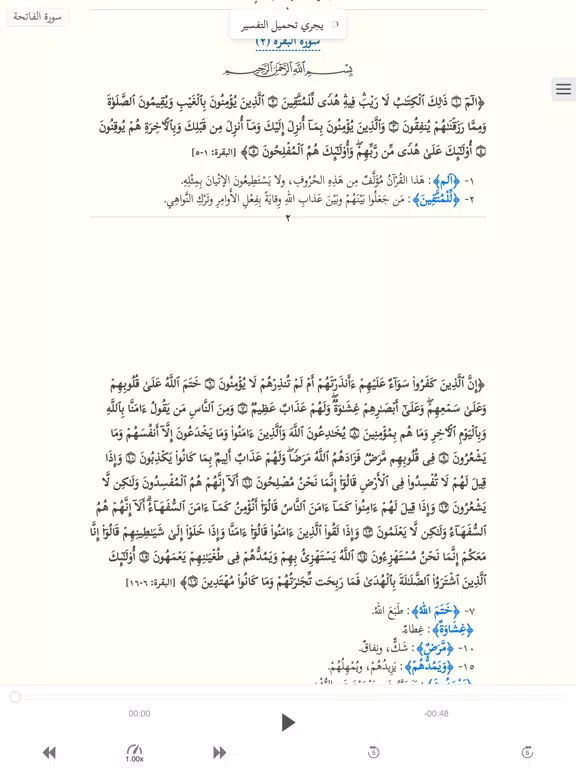 سورة الفاتحة
يجري تحميل التفسير
سورة البقرة (٢)
بِسْمِ اللَّهِ الرَّحْمَٰنِ الرَّحِيمِ
﴿الٓمٓ ۝١ ذَٰلِكَ ٱلْكِتَٰبُ لَا رَيْبَۛ فِيهِۛ هُدًى لِّلْمُتَّقِينَ ۝٢ ٱلَّذِينَ يُؤْمِنُونَ بِٱلْغَيْبِ وَيُقِيمُونَ ٱلصَّلَوٰةَ
وَمِمَّا رَزَقْنَٰهُمْ يُنفِقُونَ ۝٣ وَٱلَّذِينَ يُؤْمِنُونَ بِمَآ أُنزِلَ إِلَيْكَ وَمَآ أُنزِلَ مِن قَبْلِكَ وَبِٱلْءَاخِرَةِ هُمْ يُوقِنُونَ
۝٤ أُو۟لَٰٓئِكَ عَلَىٰ هُدًى مِّن رَّبِّهِمْۖ وَأُو۟لَٰٓئِكَ هُمُ ٱلْمُفْلِحُونَ ۝٥﴾ [البقرة: ١-٥]
١- ﴿آلم﴾: هَذَا القُرْآنُ مُؤَلَّفٌ مِن هَذِهِ الحُرُوفِ، ولَا يَسْتَطِيعُونَ الإِتْيَانَ بِمِثْلِهِ.
٢- ﴿لِّلْمُتَّقِينَ﴾: مَن جَعَلُوا بَيْنَهُمْ وَبَيْنَ عَذَابِ اللهِ وِقَايَةً بِفِعْلِ الأَوامِرِ وتَرْكِ النَّواهِي.
٢
﴿إِنَّ ٱلَّذِينَ كَفَرُوا۟ سَوَآءٌ عَلَيْهِمْ ءَأَنذَرْتَهُمْ أَمْ لَمْ تُنذِرْهُمْ لَا يُؤْمِنُونَ ۝٦ خَتَمَ ٱللَّهُ عَلَىٰ قُلُوبِهِمْ
وَعَلَىٰ سَمْعِهِمْۖ وَعَلَىٰٓ أَبْصَٰرِهِمْ غِشَٰوَةٌۖ وَلَهُمْ عَذَابٌ عَظِيمٌ ۝٧ وَمِنَ ٱلنَّاسِ مَن يَقُولُ ءَامَنَّا بِٱللَّهِ
وَبِٱلْيَوْمِ ٱلْءَاخِرِ وَمَا هُم بِمُؤْمِنِينَ ۝٨ يُخَٰدِعُونَ ٱللَّهَ وَٱلَّذِينَ ءَامَنُوا۟ وَمَا يَخْدَعُونَ إِلَّآ أَنفُسَهُمْ وَمَا
يَشْعُرُونَ ۝٩ فِى قُلُوبِهِم مَّرَضٌ فَزَادَهُمُ ٱللَّهُ مَرَضًاۖ وَلَهُمْ عَذَابٌ أَلِيمٌۢ بِمَا كَانُوا۟ يَكْذِبُونَ ۝١٠ وَإِذَا
قِيلَ لَهُمْ لَا تُفْسِدُوا۟ فِى ٱلْأَرْضِ قَالُوٓا۟ إِنَّمَا نَحْنُ مُصْلِحُونَ ۝١١ أَلَآ إِنَّهُمْ هُمُ ٱلْمُفْسِدُونَ وَلَٰكِن لَّا
يَشْعُرُونَ ۝١٢ وَإِذَا قِيلَ لَهُمْ ءَامِنُوا۟ كَمَآ ءَامَنَ ٱلنَّاسُ قَالُوٓا۟ أَنُؤْمِنُ كَمَآ ءَامَنَ ٱلسُّفَهَآءُۗ أَلَآ إِنَّهُمْ هُمُ
ٱلسُّفَهَآءُ وَلَٰكِن لَّا يَعْلَمُونَ ۝١٣ وَإِذَا لَقُوا۟ ٱلَّذِينَ ءَامَنُوا۟ قَالُوٓا۟ ءَامَنَّا وَإِذَا خَلَوْا۟ إِلَىٰ شَيَٰطِينِهِمْ قَالُوٓا۟ إِنَّا
مَعَكُمْ إِنَّمَا نَحْنُ مُسْتَهْزِءُونَ ۝١٤ ٱللَّهُ يَسْتَهْزِئُ بِهِمْ وَيَمُدُّهُمْ فِى طُغْيَٰنِهِمْ يَعْمَهُونَ ۝١٥ أُو۟لَٰٓئِكَ
ٱلَّذِينَ ٱشْتَرَوُا۟ ٱلضَّلَٰلَةَ بِٱلْهُدَىٰ فَمَا رَبِحَت تِّجَٰرَتُهُمْ وَمَا كَانُوا۟ مُهْتَدِينَ ۝١٦﴾ [البقرة: ٦-١٦]
٧- ﴿خَتَمَ اللهُ﴾: طَبَعَ اللهُ.
﴿غِشَاوَةٌ﴾: غِطاءٌ.
١٠- ﴿مَّرَضٌ﴾: شَكٌّ، ونِفاقٌ.
١٥- ﴿وَيَمُدُّهُمْ﴾: يَزِيدُهُمْ، ويُمْهِلُهُمْ.
00:00
-00:48
1.00x
5
5